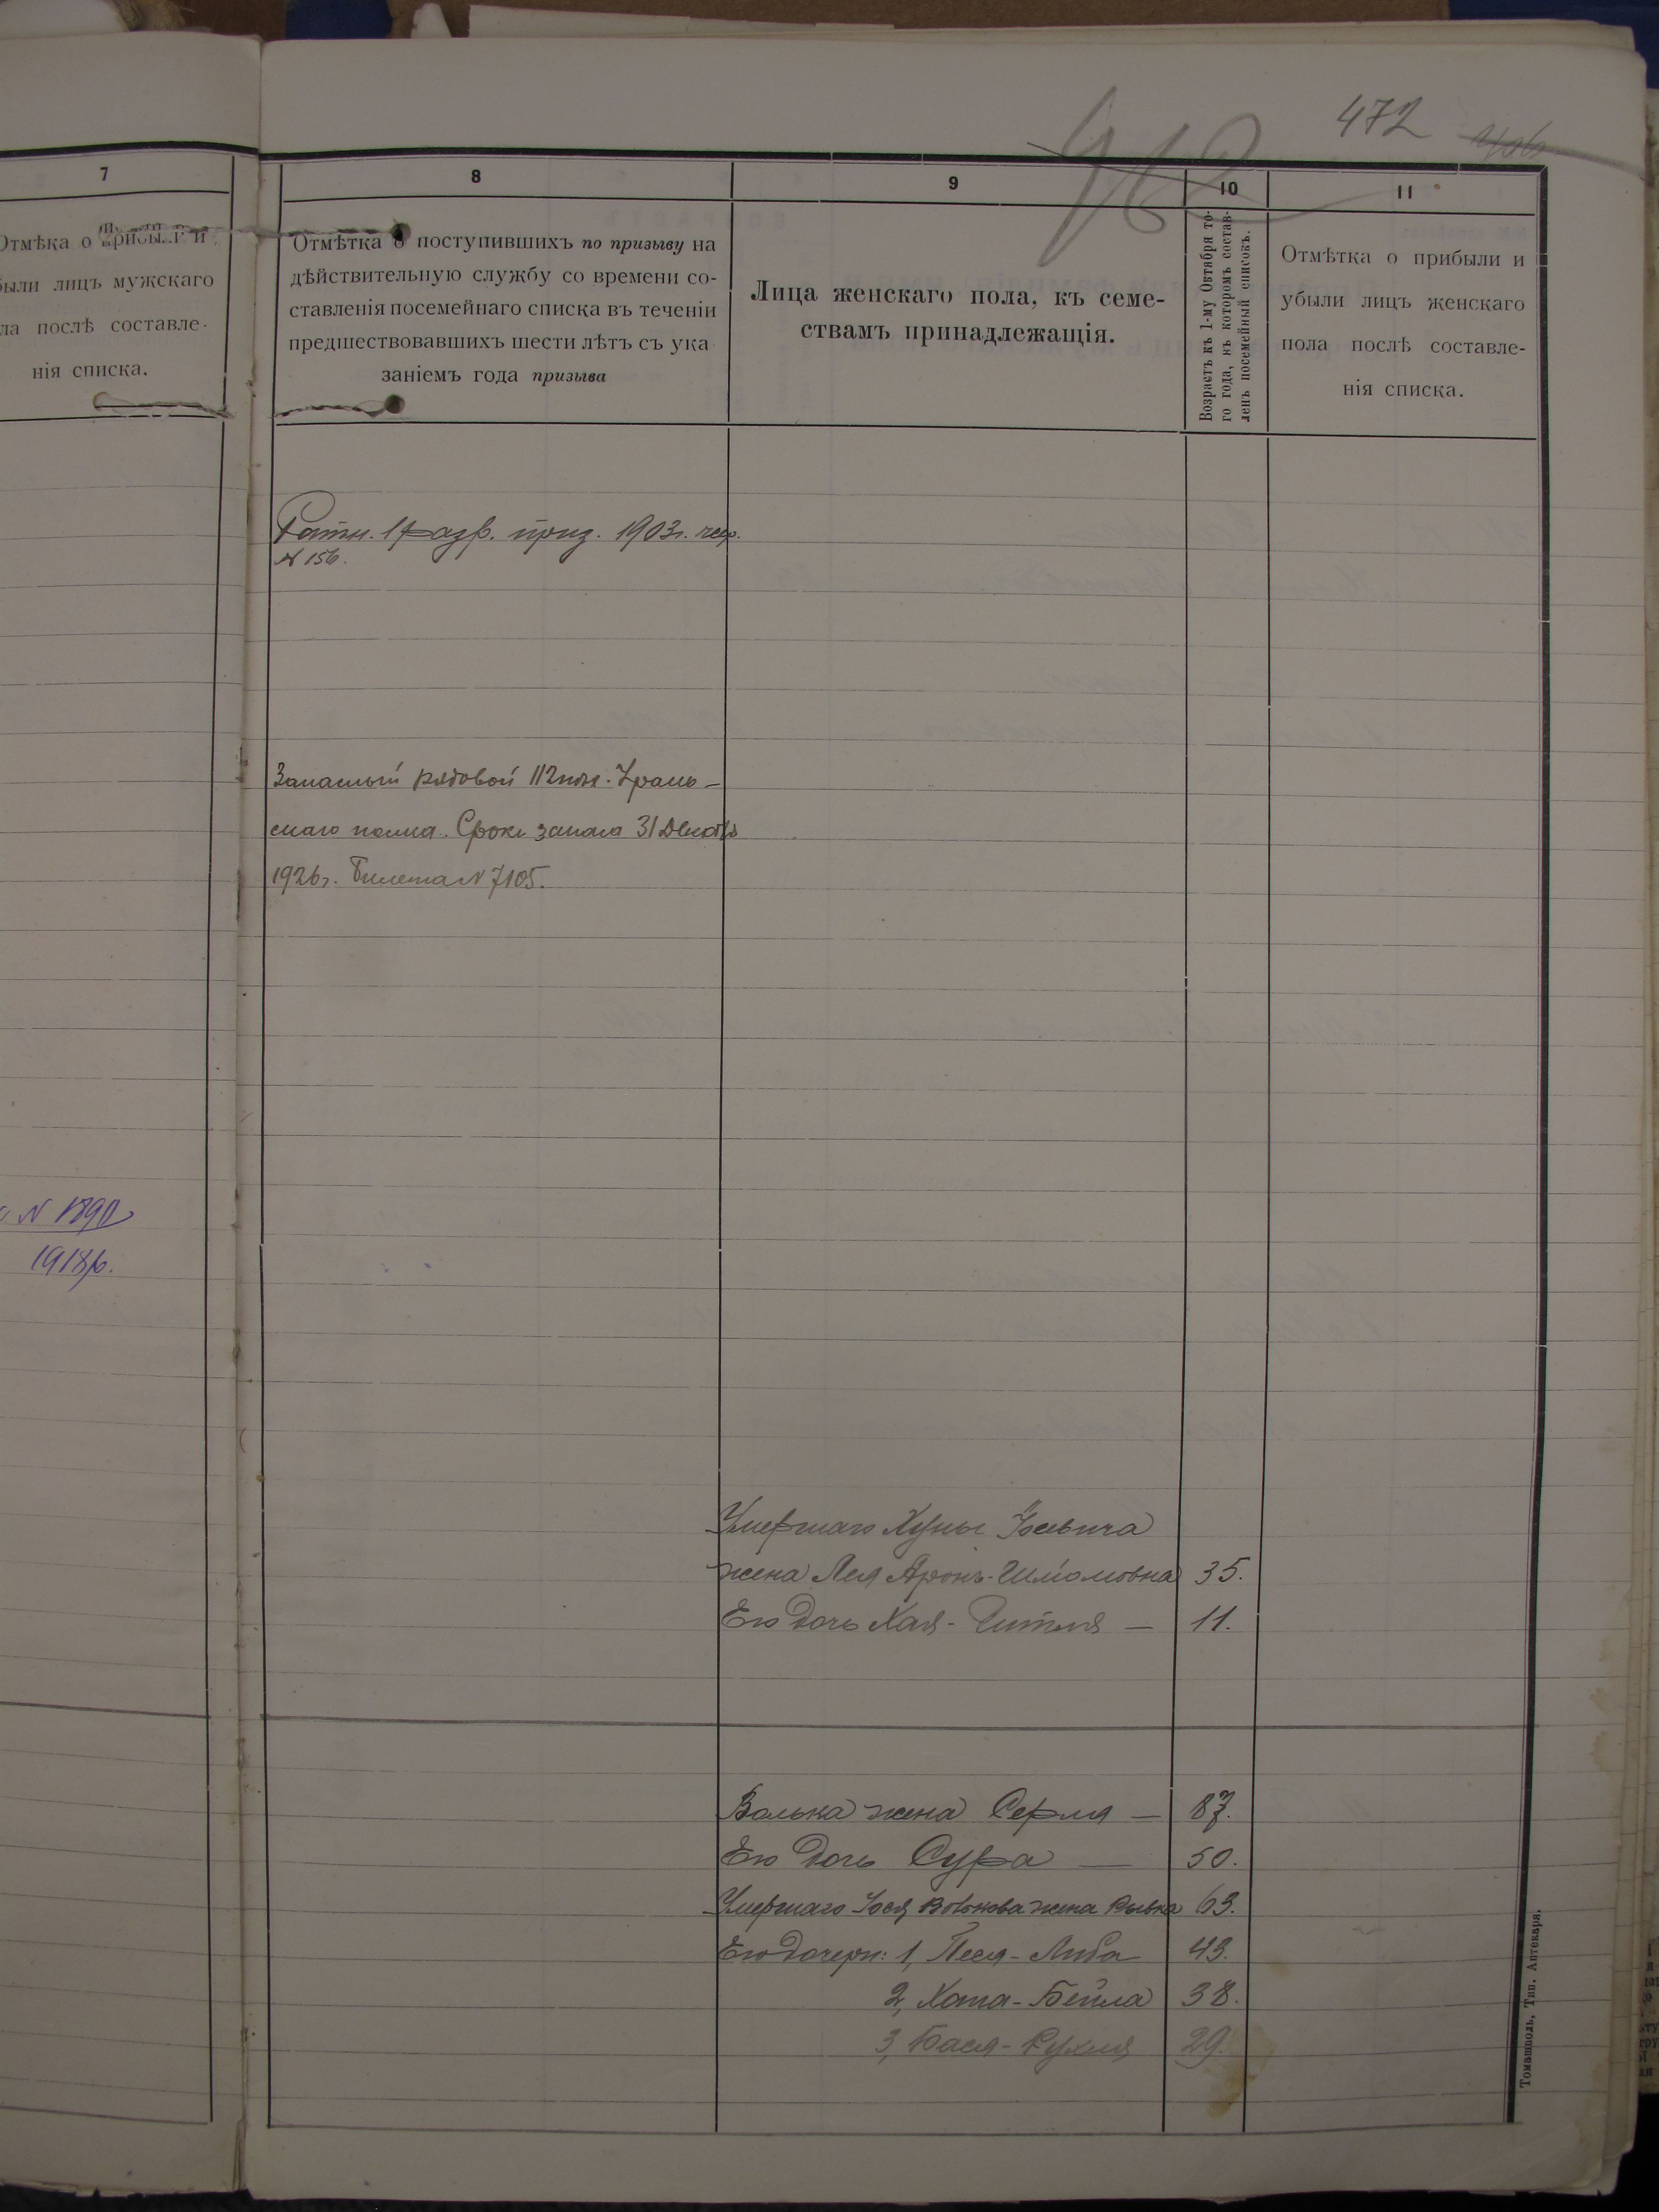 472
7
Отмѣка о прибыли и
были лицъ мужскаго
ла послѣ составле-
нія списка.
8
Отмѣтка о поступившихъ по призыву на
дѣйствительную службу со времени со-
ставленія посемейнаго списка въ теченіи
предшествовавшихъ шести лѣтъ съ ука
заніемъ года призыва
9
Лица женскаго пола, къ семе-
ствамъ принадлежащія.
10
Возрастъ къ 1-му Октября то-
го года, къ которомъ состав-
ленъ посемейный списокъ.
11
Отмѣтка о прибыли и
убыли лицъ женскаго
пола послѣ составле-
нія списка.
Ратн. 1 разр. приз. 1903г. жер.
№ 156.
Запасный рядовой 112 пѣх. Ураль-
скаго полка. Срокъ запаса 31 Декабр
1926г. Билета № 7105.
№ 1890
1918г.
Умершаго Хуны Іосьвича
жена Лея Аронъ-Шломовна 35.
Его дочь Хая-Гитля — 11.
Волька жена Серля — 87.
Его дочь Сура — 50.
Умершаго Іося Волькова жена Рывка 63.
Его дочери: 1, Песя-Либа 43.
2, Хана-Бейла 38.
3, Бася-Рухля 29.
Томашполь, Тип. Аптекаря.